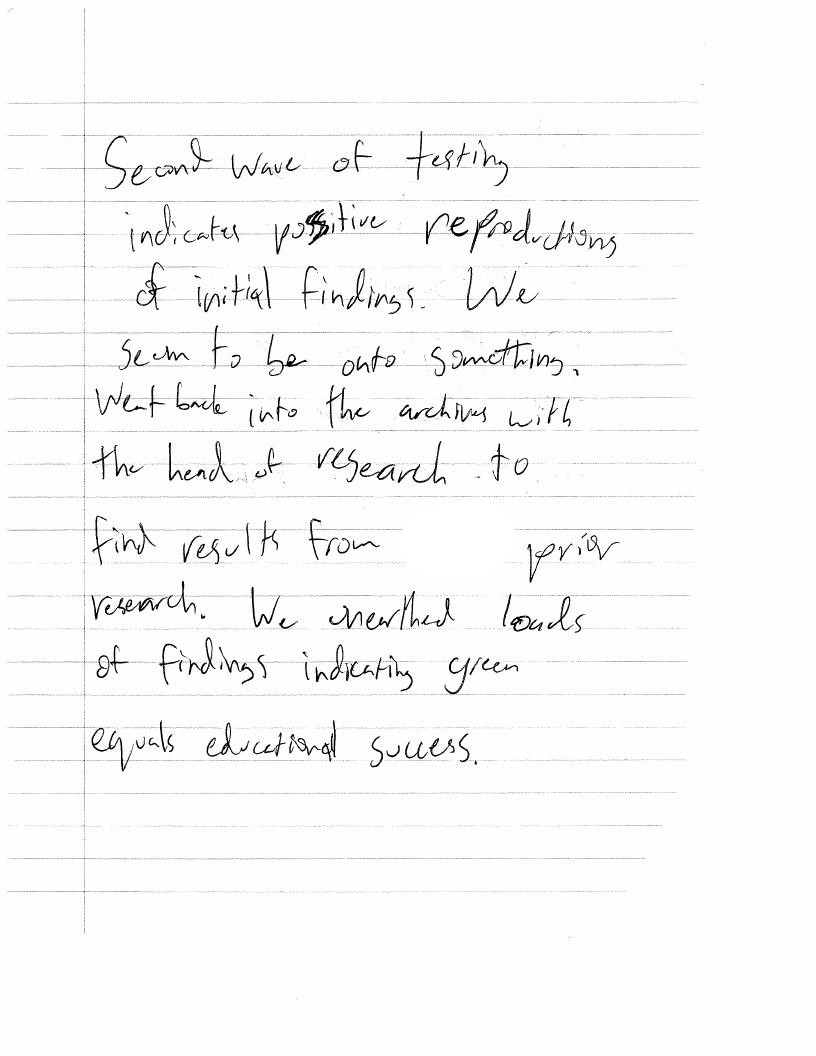 Second wave of testing
indicates positive reproductions
of initial findings. We
seem to be onto something.
Went back into the archives with
the head of research to
find results from prior
research. We unearthed loads
of findings indicating green
equals educational success.